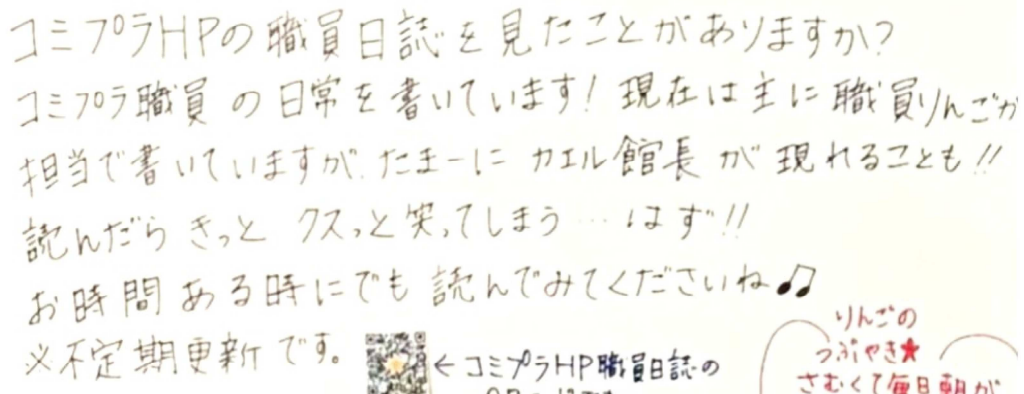 コミプラHPの職員日誌を見たことがありますか?
コミプラ職員の日常を書いています!現在は主に職員りんごが
担当で書いていますが、たまーにカエル館長が現れることも!!
読んだらきっとクスっと笑ってしまう…はず!!
お時間ある時にでも読んでみてくださいね♫
※不定期更新です。
←コミプラHP職員日誌の
りんごの
つぶやき★
さむくて毎日朝が